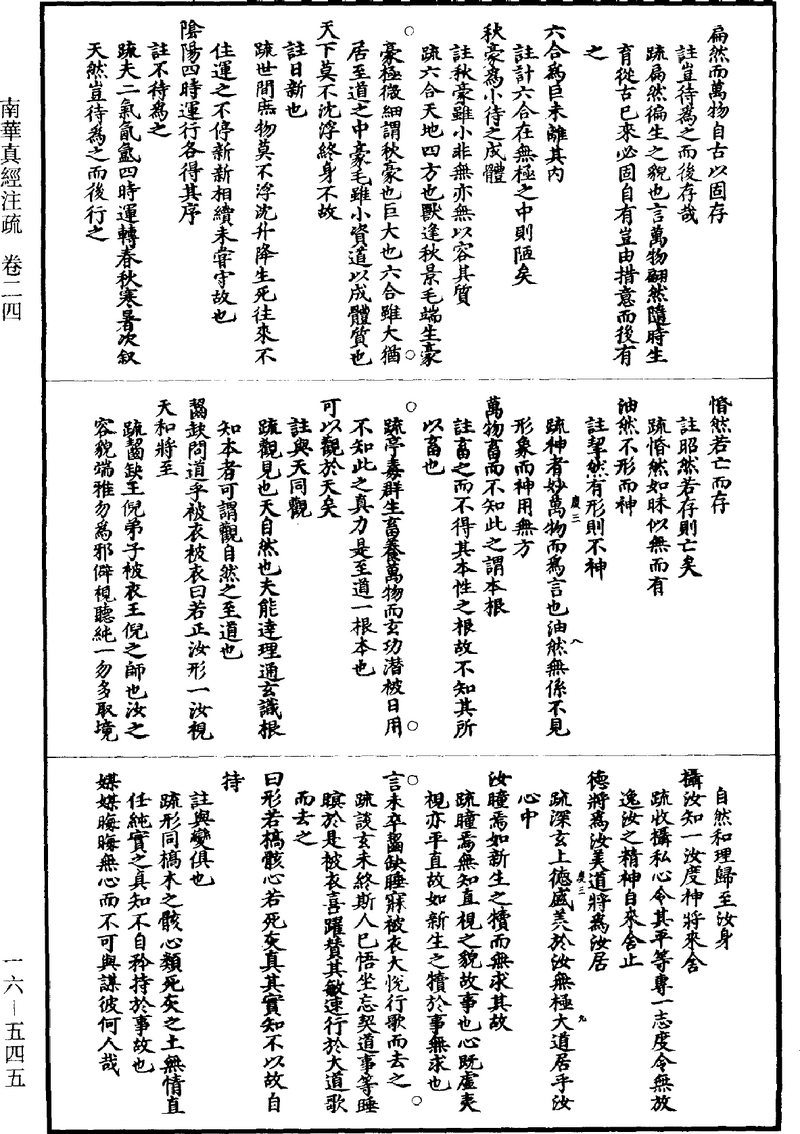 南華真經注疏　卷二四
一六－五四五
扁然而萬物自古以固存
註豈待為之而後存哉
疏扁然徧生之貌也言萬物翩然隨時生
育從古已來必固自有豈由措意而後有
之
六合為巨未離其內
註計六合在無極之中則陋矣
秋豪為小待之成體
註秋豪雖小非無亦無以容其質
疏六合天地四方也獸逢秋景毛端生豪
豪極微細謂秋豪也巨大也六合雖大猶
居至道之中豪毛雖小資道以成體質也
天下莫不沈浮終身不故
註日新也
疏世間庶物莫不浮沈升降生死往來不
住運之不停新新相續未嘗守故也
陰陽四時運行各得其序
註不待為之
疏夫二氣氤氳四時運轉春秋寒暑次敘
天然豈待為之而後行之
惛然若亡而存
註昭然若存則亡矣
疏惛然如昧似無而有
油然不形而神
註挈然有形則不神
疏神者妙萬物而為言也油然無係不見
形象而神用無方
萬物畜而不知此之謂本根
註畜之而不得其本性之根故不知其所
以畜也
疏亭毒群生畜養萬物而玄功潛被日用
不知此之真力是至道一根本也
可以觀於天矣
註與天同觀
疏觀見也天自然也夫能達理通玄識根
知本者可謂觀自然之至道也
齧缺問道乎被衣被衣曰若正汝形一汝視
天和將至
疏齧缺王倪弟子被衣王倪之師也汝之
容貌端雅勿為邪僻視聽純一勿多取境
自然和理歸至汝身
攝汝知一汝度神將來舍
疏收攝私心令其平等專一志度令無放
逸汝之精神自來舍止
德將為汝美道將為汝居
疏深玄上德盛美於汝無極大道居乎汝
心中
汝瞳焉如新生之犢而無求其故
疏瞳焉無知直視之貌故事也心既虛夷
視亦平直故如新生之犢於事無求也
言未卒齧缺睡寐被衣大悅行歌而去之
疏談玄未終斯人已悟坐忘契道事等睡
瞑於是被衣喜躍贊其敏速行於大道歌
而去之
曰形若槁骸心若死灰真其實知不以故自
持
註與變俱也
疏形同槁木之骸心類死灰之土無情直
任純實之真知不自矜持於事故也
媒媒晦晦無心而不可與謀彼何人哉